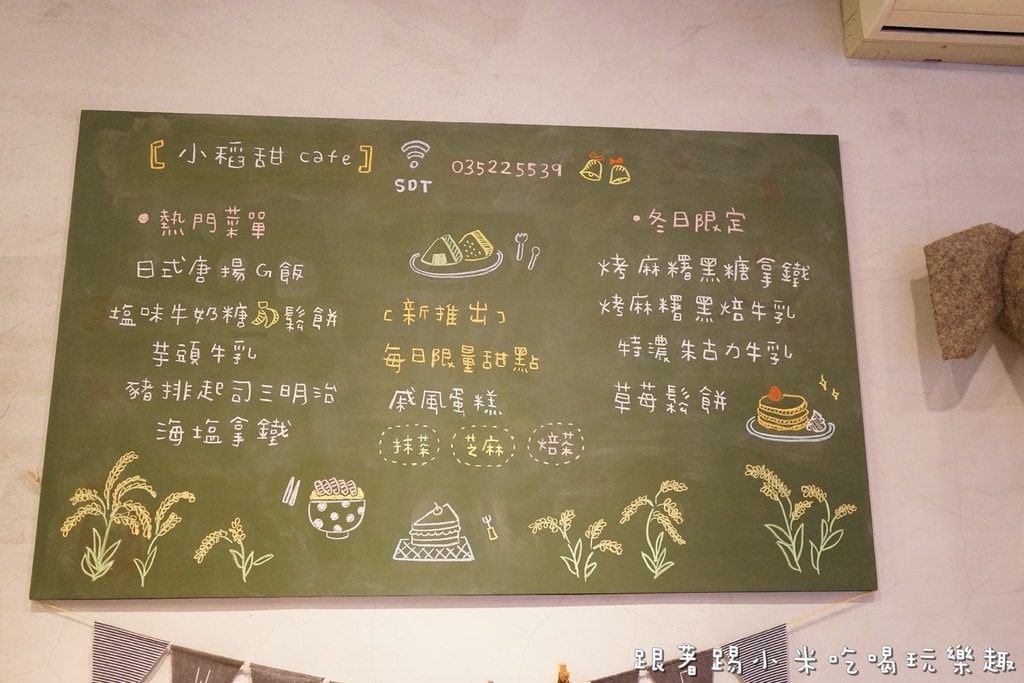 [小稻甜 cafe]
SDT
035225539
•熱門菜單
日式唐揚G飯
塩味牛奶糖鬆餅
芋頭牛乳
豬排起司三明治
海塩拿鐵
[新推出]
每日限量甜點
戚風蛋糕
抹茶 芝麻 焙茶
•冬日限定
烤麻糬黑糖拿鐵
烤麻糬黑焙牛乳
特濃朱古力牛乳
草莓鬆餅
跟著踢小米吃喝玩樂趣